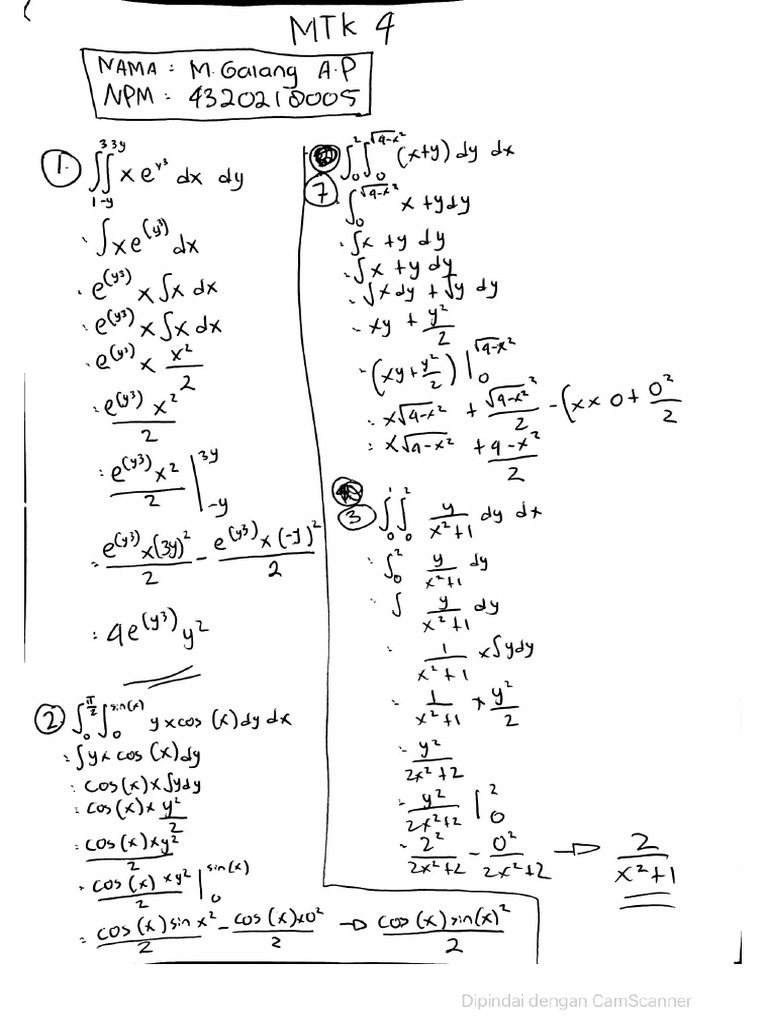 MTK 4
NAMA : M. Galang A.P
NPM : 4320210005
1. ∫₁³∫₋ᵧ³ʸ x e^y³ dx dy
∫xe^(y³) dx
e^(y³) x ∫x dx
e^(y³) x ∫x dx
e^(y³) x x²/2
= e^(y³) x²/2
= e^(y³) x²/2 |₋ᵧ³ʸ
= e^(y³) x (3y)²/2 - e^(y³) x (-y)²/2
= 4e^(y³) y²
2 ∫₀^(π/2) ∫₀^sin(x) y x cos (x) dy dx
= ∫y x cos (x) dy
= cos(x) x ∫y dy
= cos (x) x y²/2
= cos (x) x y²/2
= cos (x) x y²/2 |₀^sin(x)
= cos (x) sin x²/2 - cos (x) x 0²/2 → cos (x) sin (x)²/2
7 ∫₀² ∫₀^√4-x² (x+y) dy dx
∫₀^√4-x² x + y dy
= ∫x + y dy
= ∫x + y dy
= ∫x dy + ∫y dy
= xy + y²/2
= (xy + y²/2) |₀^√4-x²
= x√4-x² + √4-x²²/2 - (x x 0 + 0²/2
= x√4-x² + 4-x²/2
3 ∫₀¹ ∫₀² y/x²+1 dy dx
= ∫₀² y/x²+1 dy
= ∫ y/x²+1 dy
= 1/x²+1 x ∫y dy
= 1/x²+1 x y²/2
= y²/2x²+2
= y²/2x²+2 |₀²
= 2²/2x²+2 - 0²/2x²+2 → 2/x²+1
Dipindai dengan CamScanner